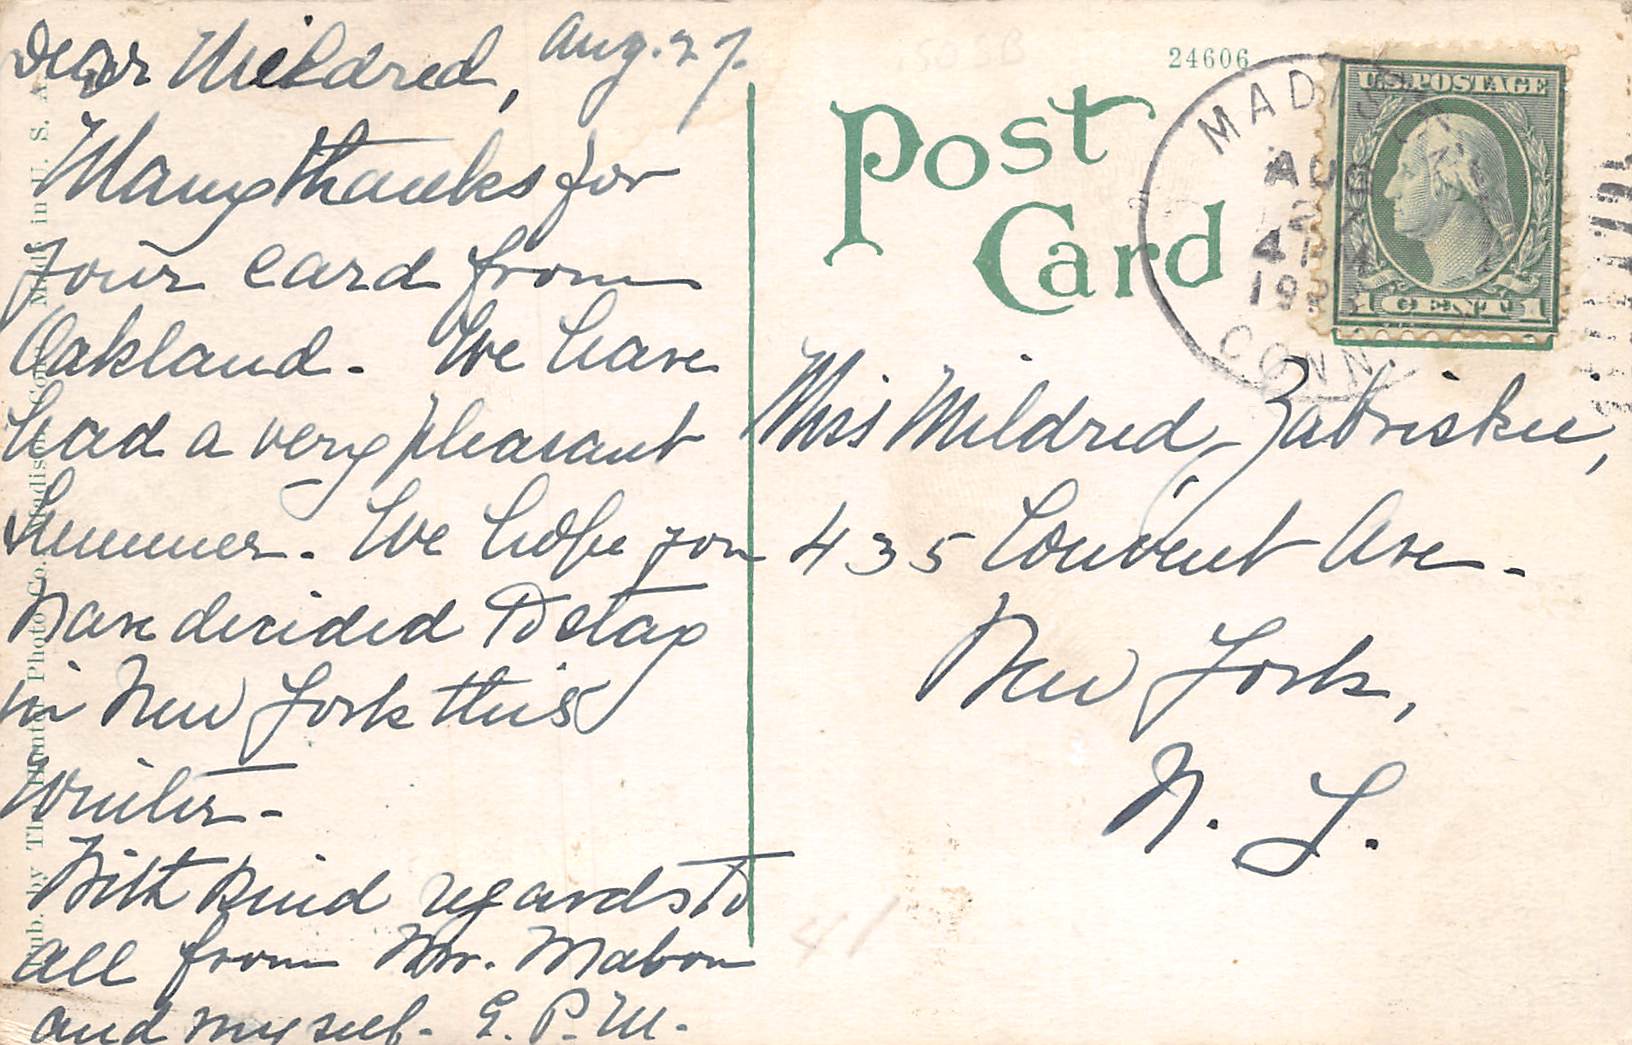 Aug. 27.
Dear Mildred,
Many thanks for
your card from
Oakland. We have
had a very pleasant
Summer. We hope you
have decided to stay
in New York this
Winter.
With kind regards to
all from Mr. Mabon
and myself. E. P. M.
Pub. by The Hunter Photo Co. Madison, Conn. Made in U. S. A.
24606
Post
Card
MADISON
AUG
4 PM
19
CONN.
U.S. POSTAGE
1 CENT 1
Miss Mildred Zabriskie,
435 Convent Ave.
New York,
N. Y.
41